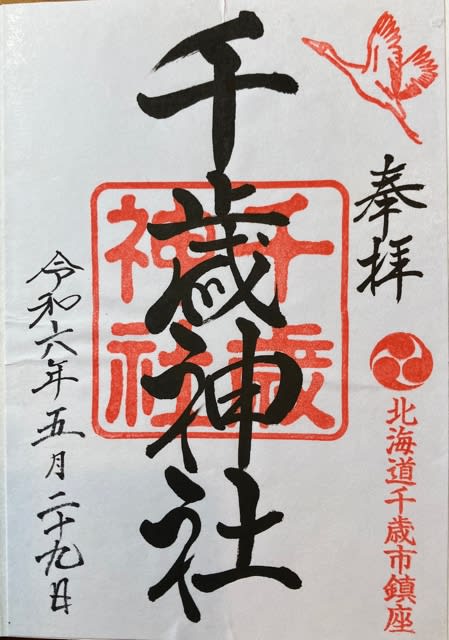 奉拝
北海道千歳市鎮座
千歳神社
千歳
神社
令和六年五月二十九日